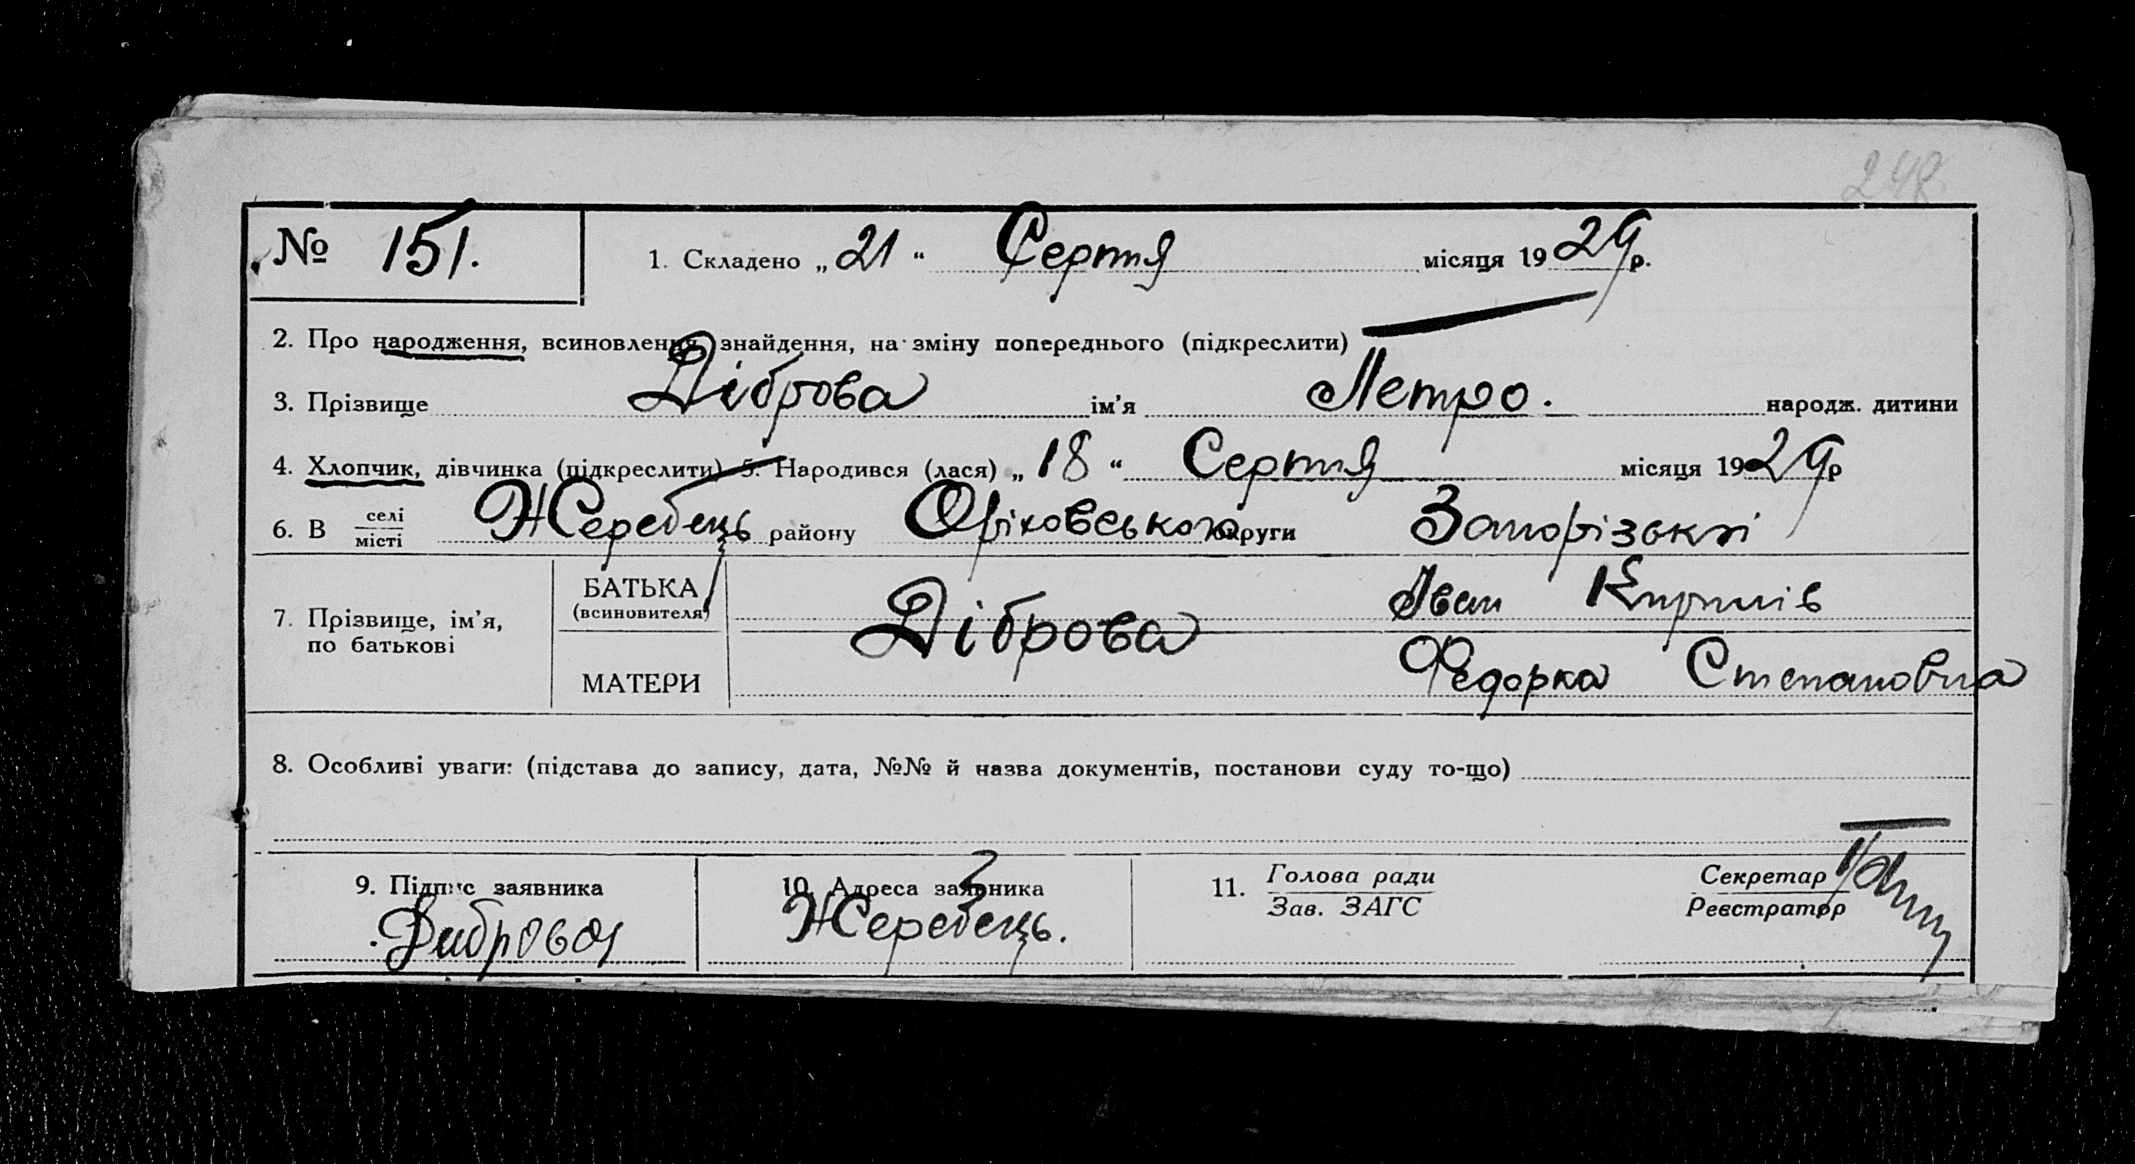 248
№ 151. 1. Складено „ 21 “ Серпня місяця 1929 р.
2. Про народження, всиновлення, знайдення, на зміну попереднього (підкреслити)
3. Прізвище Діброва ім’я Петро. народж. дитини
4. Хлопчик, дівчинка (підкреслити) 5. Народився (лася) „ 18 “ Серпня місяця 1929 р
6. В селі місті Жеребець району Оріховського округи Запорізькі
7. Прізвище, ім’я, по батькові
БАТЬКА (всиновителя) Діброва Іван Кирилів
МАТЕРИ Федорка Степановна
8. Особливі уваги: (підстава до запису, дата, №№ й назва документів, постанови суду то-що)
9. Підпис заявника 10. Адреса заявника 11. Голова ради Секретар
Зав. ЗАГС Реєстратор
Диброва Жеребець.